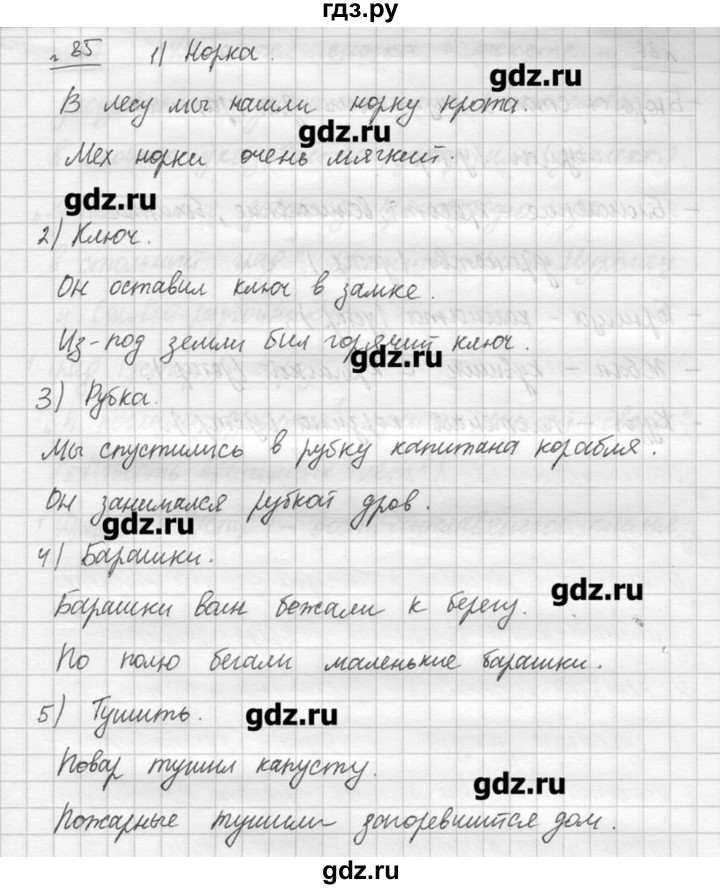 гдз.ру
№ 85 1) Норка.
gdz.ru
В лесу мы нашли норку крота.
gdz.ru
Мех норки очень мягкий.
gdz.ru
2) Ключ.
Он оставил ключ в замке.
Из-под земли бил горячий ключ.
gdz.ru
3) Рубка.
Мы спустились в рубку капитана корабля.
Он занимался рубкой дров.
gdz.ru
4) Барашки.
gdz.ru
Барашки волн бежали к берегу.
По полю бегали маленькие барашки.
5) Тушить.
gdz.ru
Повар тушил капусту.
gdz.ru
Пожарные тушили загоревшийся дом.
gdz.ru